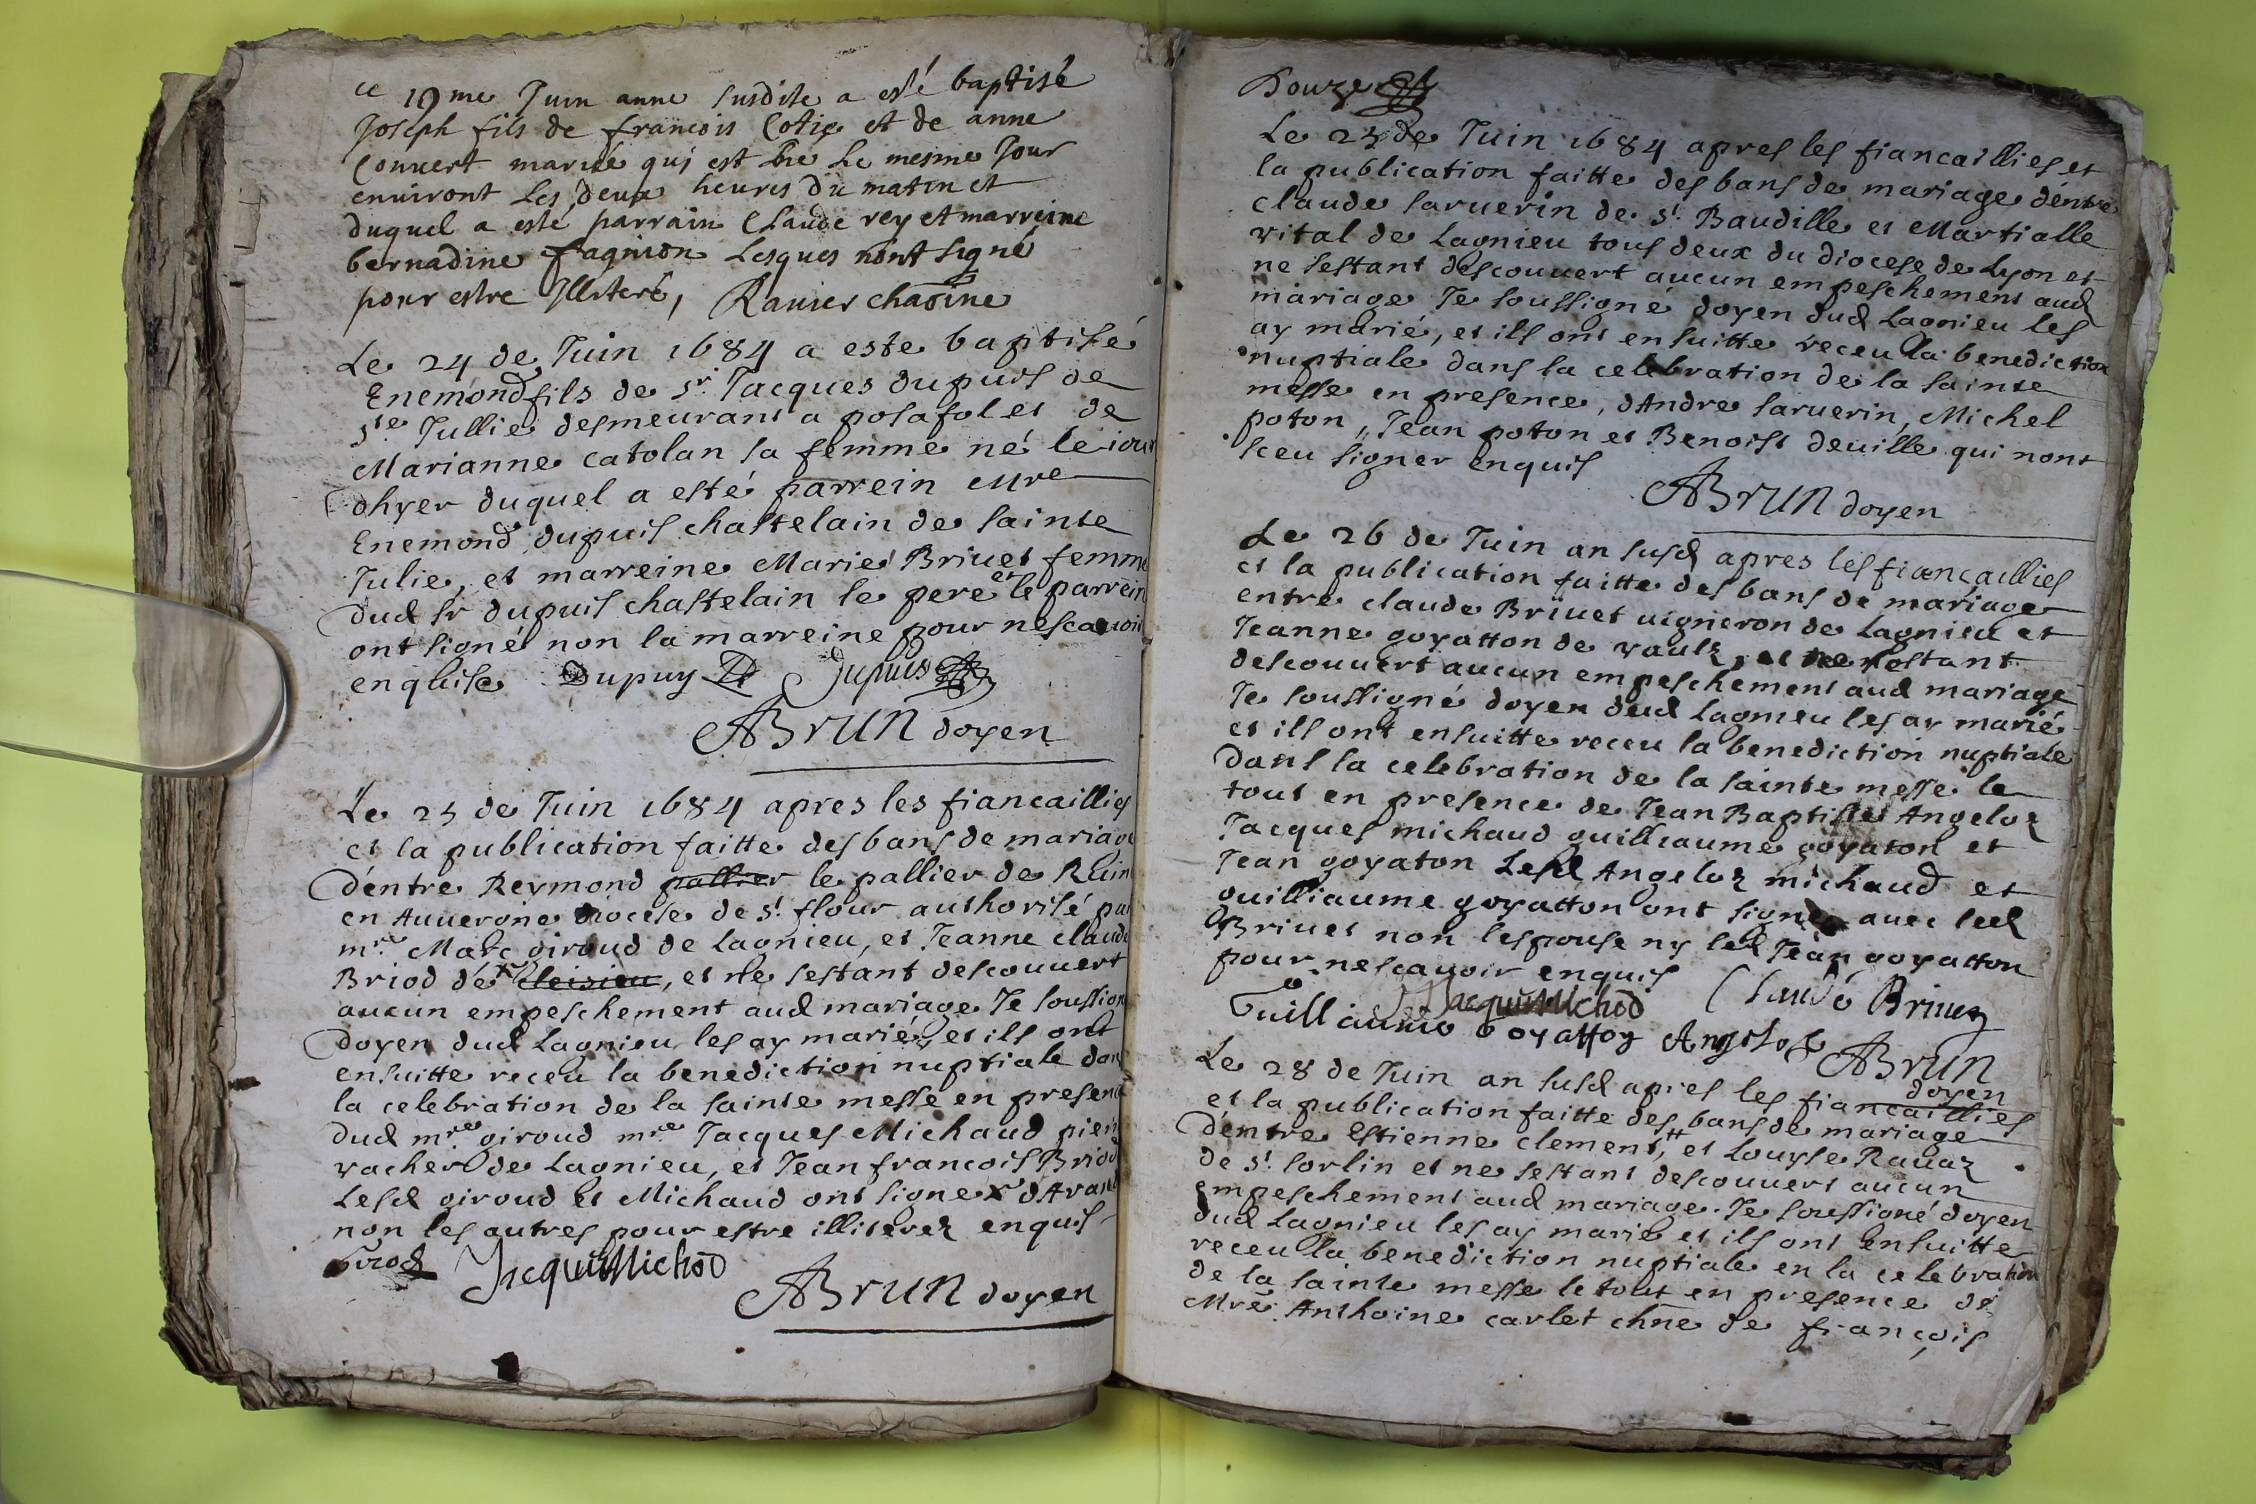 ce 19me Juin anne susdite a esté baptisé
Joseph fils de francois Cotie et de anne
Convert mariés qui est né le mesme Jour
environt les deux heures du matin et
duquel a esté parrain Claude rey et marreine
bernadine fagnion lesques nont signé
pour estre Illiteré,
Le 24 de Juin 1684 a este baptisé
Enemond fils de Sr. Jacques dupuis de
Ste Jullie desmeurant a posafol et de
Marianne catolan sa femme né le iour
dhyer duquel a esté parrein Mre
Enemond dupuis chastelain de sainte
Julie, et marreine Marie Brivet femme
dud sr dupuis chastelain le pere et le parrein
ont signé non la marreine pour nescavoir
enquise Dupuy Dupuis
ABrun doyen
Le 25 de Juin 1684 apres les fiancaillies
et la publication faitte des bans de mariage
dentre Reymond pallier le pallier de Ruin
en Auvergne diocese de St. flour authorisé par
mre Marc giroud de Lagnieu, et Jeanne claude
Briod de cleisieu, et ne sestant descouvert
aucun empeschement aud mariage Je soussigne
doyen dud Lagnieu les ay marié, et ils ont
ensuitte receu la benediction nuptiale dans
la celebration de la sainte messe en presence
dud mre giroud mre Jacques Michaud pierre
vacher de Lagnieu, et Jean francois Briod
Lesd giroud et Michaud ont signe
non les autres pour estre illiterez enquis
Jacque Michod
ABrun doyen
Douze
Le 25 de Juin 1684 apres les fiancaillies et
la publication faitte des bans de mariage dentre
claude saruerin de St. Baudille et Martialle
vital de Lagnieu tous deux du diocese de Lyon et
ne sestant descouvert aucun empeschement aud
mariage Je soussigne doyen dud Lagnieu les
ay marié, et ils ont ensuitte receu la benediction
nuptiale dans la celebration de la sainte
messe en presence, dAndre saruerin, Michel
poton, Jean poton et Benoist deville qui nont
sceu signer enquis
ABrun doyen
Le 26 de Juin an susd apres les fiançaillies
et la publication faitte des bans de mariage
entre claude Brivet vigneron de Lagnieu et
Jeanne goyatton de vaulx, et ne sestant
descouvert aucun empeschement aud mariage
Je soussigné doyen dud Lagnieu les ay marié
et ils ont ensuitte receu la benediction nuptiale
dans la celebration de la sainte messe le
tout en presence de Jean Baptiste Angeloz
Jacques michaud guilliaume goyaton et
Jean goyaton Lesd Angeloz michaud et
guilliaume goyatton ont signe avec led
Brivet non lespouse ny led Jean goyatton
pour nescavoir enquis Claude Brivez
Jacque Michod
Guilliaume Goyatton Angeloz
ABrun
doyen
Le 28 de Juin an susd apres les fiancaillies
et la publication faitte des bans de mariage
dentre Estienne clement, et Louyse Ravaz
de St. Sorlin et ne sestant descouvert aucun
empeschement aud mariage. Je soussigné doyen
dud Lagnieu les ay marié et ils ont ensuitte
receu la benediction nuptiale en la celebration
de la sainte messe le tout en presence de
Mre Anthoine carlet chne de françois